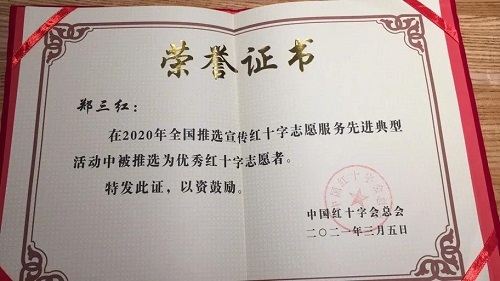 荣誉证书
郑三红：
在2020年全国推选宣传红十字志愿服务先进典型
活动中被推选为优秀红十字志愿者。
特发此证，以资鼓励。
中国红十字会总会
二〇二一年三月五日
中国红十字会总会